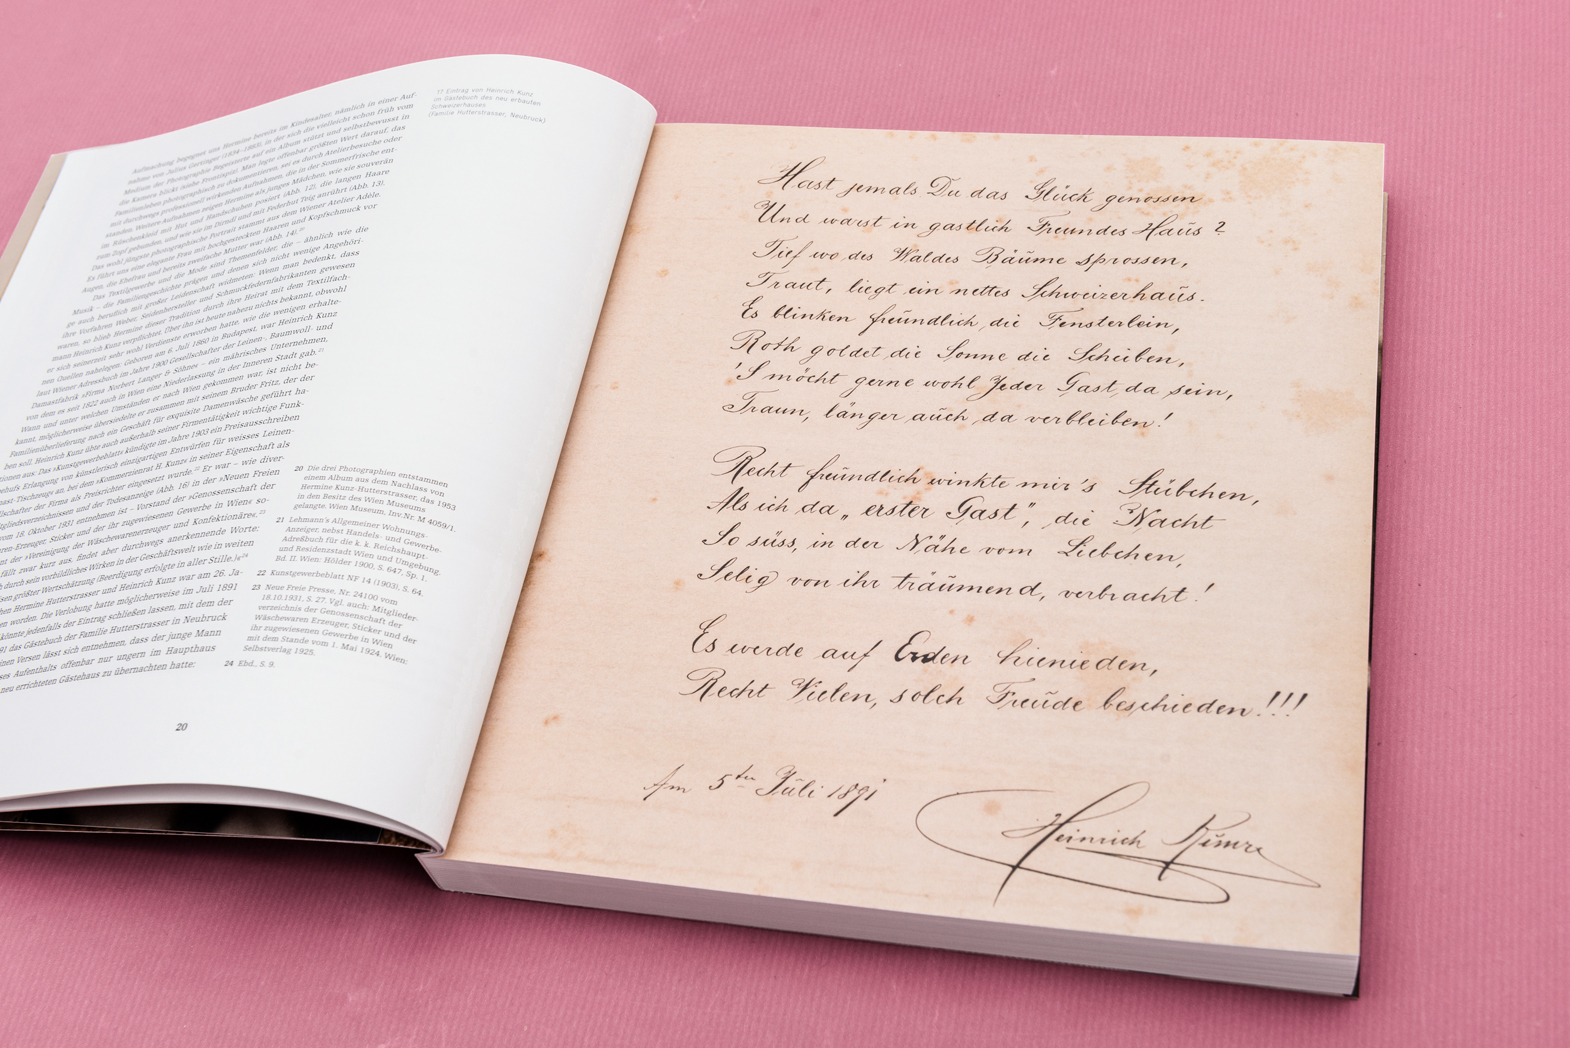 Aufmachung begegnet uns Hermine bereits im Kindesalter, nämlich in einer Auf-
nahme von Julius Gertinger (1834–1883), in der sich die vielleicht schon früh vom
Medium der Photographie Begeisterte auf ein Album stützt und selbstbewusst in
die Kamera blickt (siehe Frontispiz). Man legte offenbar größten Wert darauf, das
Familienleben photographisch zu dokumentieren, sei es durch Atelierbesuche oder
mit durchwegs professionell wirkenden Aufnahmen, die in der Sommerfrische ent-
standen. Weitere Aufnahmen zeigen Hermine als junges Mädchen, wie sie souverän
im Rüschenkleid mit Hut und Handschuhen posiert (Abb. 12), die langen Haare
zum Zopf gebunden, und wie sie im Dirndl und mit Federhut Teig anrührt (Abb. 13).
Das wohl jüngste photographische Portrait stammt aus dem Wiener Atelier Adèle.
Es führt uns eine elegante Frau mit hochgesteckten Haaren und Kopfschmuck vor
Augen, die Ehefrau und bereits zweifache Mutter war (Abb. 14).²⁰
Das Textilgewerbe und die Mode sind Themenfelder, die – ähnlich wie die
Musik – die Familiengeschichte prägen und denen sich nicht wenige Angehöri-
ge auch beruflich mit großer Leidenschaft widmeten: Wenn man bedenkt, dass
ihre Vorfahren Weber, Seidenhersteller und Schmuckfedernfabrikanten gewesen
waren, so blieb Hermine dieser Tradition durch ihre Heirat mit dem Textilfach-
mann Heinrich Kunz verpflichtet. Über ihn ist heute nahezu nichts bekannt, obwohl
er sich seinerzeit sehr wohl Verdienste erworben hatte, wie die wenigen erhalte-
nen Quellen nahelegen: Geboren am 6. Juli 1860 in Budapest, war Heinrich Kunz
laut Wiener Adressbuch im Jahre 1900 Gesellschafter der Leinen-, Baumwoll- und
Damastfabrik »Firma Norbert Langer & Söhne« – ein mährisches Unternehmen,
von dem es seit 1822 auch in Wien eine Niederlassung in der Inneren Stadt gab.²¹
Wann und unter welchen Umständen er nach Wien gekommen war, ist nicht be-
kannt, möglicherweise übersiedelte er zusammen mit seinem Bruder Fritz, der der
Familienüberlieferung nach ein Geschäft für exquisite Damenwäsche geführt ha-
ben soll. Heinrich Kunz übte auch außerhalb seiner Firmentätigkeit wichtige Funk-
tionen aus: Das »Kunstgewerbeblatt« kündigte im Jahre 1903 ein Preisausschreiben
behufs Erlangung von künstlerisch einzigartigen Entwürfen für weisses Leinen-
mast-Tischzeug« an, bei dem »Kommerzienrat H. Kunz« in seiner Eigenschaft als
llschafter der Firma als Preisrichter eingesetzt wurde.²² Er war – wie diver-
tgliedsverzeichnissen und der Todesanzeige (Abb. 16) in der »Neuen Freien
vom 18. Oktober 1931 entnehmen ist – Vorstand der »Genossenschaft der
ren-Erzeuger, Sticker und der ihr zugewiesenen Gewerbe in Wien« so-
nt der »Vereinigung der Wäschewarenerzeuger und Konfektionäre«.²³
fällt zwar kurz aus, findet aber durchwegs anerkennende Worte:
h durch sein vorbildliches Wirken in der Geschäftswelt wie in weiten
sen größter Wertschätzung (Beerdigung erfolgte in aller Stille.)«²⁴
hen Hermine Hutterstrasser und Heinrich Kunz war am 26. Ja-
en worden. Die Verlobung hatte möglicherweise im Juli 1891
könnte jedenfalls der Eintrag schließen lassen, mit dem der
91 das Gästebuch der Familie Hutterstrasser in Neubruck
inen Versen lässt sich entnehmen, dass der junge Mann
ses Aufenthalts offenbar nur ungern im Haupthaus
neu errichteten Gästehaus zu übernachten hatte:
17 Eintrag von Heinrich Kunz
im Gästebuch des neu erbauten
Schweizerhauses
(Familie Hutterstrasser, Neubruck)
20 Die drei Photographien entstammen
einem Album aus dem Nachlass von
Hermine Kunz-Hutterstrasser, das 1953
in den Besitz des Wien Museums
gelangte. Wien Museum, Inv.Nr. M 4059/1.
21 Lehmann's Allgemeiner Wohnungs-
Anzeiger, nebst Handels- und Gewerbe-
Adreßbuch für die k. k. Reichshaupt-
und Residenzstadt Wien und Umgebung,
Bd. II. Wien: Hölder 1900, S. 647, Sp. 1.
22 Kunstgewerbeblatt NF 14 (1903), S. 64.
23 Neue Freie Presse, Nr. 24100 vom
18.10.1931, S. 27. Vgl. auch: Mitglieder-
verzeichnis der Genossenschaft der
Wäschewaren Erzeuger, Sticker und der
ihr zugewiesenen Gewerbe in Wien
mit dem Stande vom 1. Mai 1924. Wien:
Selbstverlag 1925.
24 Ebd., S. 9.
20
Hast jemals Du das Glück genossen
Und warst in gastlich Freundes Haus ?
Tief wo des Waldes Bäume sprossen,
Traut, liegt ein nettes Schweizerhaus.
Es blinken freundlich die Fensterlein,
Roth goldet die Sonne die Scheiben,
'S möcht gerne wohl Jeder Gast da sein,
Traun, länger auch da verbleiben!
Recht freundlich winkte mir's Stübchen,
Als ich da „erster Gast", die Nacht
So süss, in der Nähe vom Liebchen,
Selig von ihr träumend, verbracht!
Es werde auf Erden hienieden,
Recht Vielen, solch Freude beschieden!!!
Am 5ten Juli 1891
Heinrich Kunz